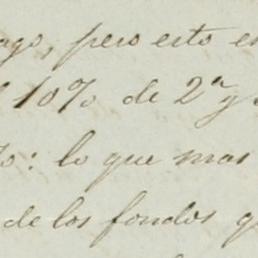 ago, pero esto e
10% de 2ª y
o: lo que mas
de los fondos q